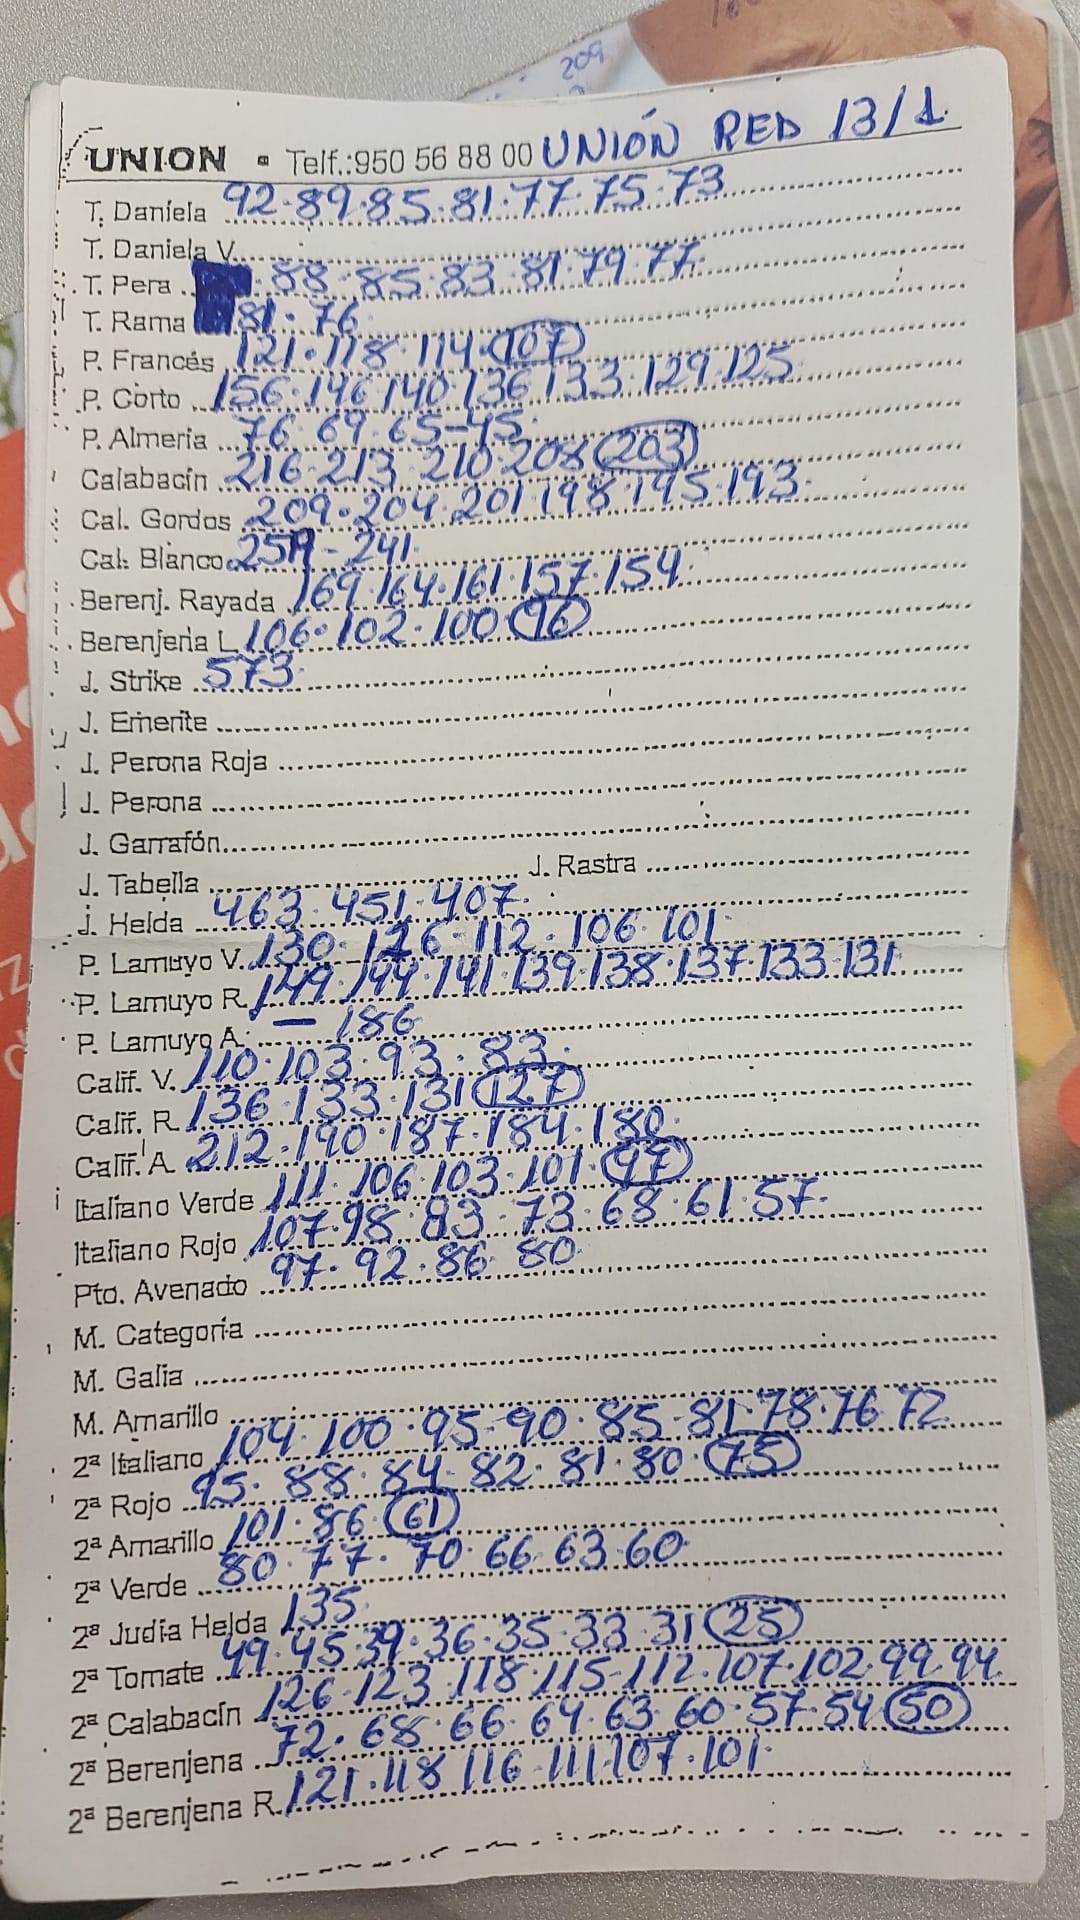 209
UNION - Telf.:950 56 88 00 UNIÓN RED 13/1
T. Daniela 92·89·85·81·77·75·73
T. Daniela V.
T. Pera 88·85·83·81·79·77
T. Rama 81·76
P. Francés 121·118·114·107
P. Corto 156·146·140·136·133·129·125
P. Almeria 76·69·65-45
Calabacín 216·213·210·208·203
Cal. Gordos 209·204·201·198·195·193
Cal. Blanco - 241
Berenj. Rayada 169·164·161·157·154
Berenjena L. 106·102·100·96
J. Strike 573
J. Emerite
J. Perona Roja
J. Perona
J. Garrafón
J. Tabella J. Rastra
J. Helda 463·451·407
P. Lamuyo V. 130·126·112·106·101
P. Lamuyo R. 149·144·141·139·138·137·133·131
P. Lamuyo A. — 186
Calif. V. 110·103·93·83
Calif. R. 136·133·131·127
Calif. A. 212·190·187·184·180
Italiano Verde 111·106·103·101·97
Italiano Rojo 107·98·83·73·68·61·57
Pto. Avenado 97·92·86·80
M. Categoría
M. Galia
M. Amarillo
2ª Italiano 104·100·95·90·85·81·78·76·72
2ª Rojo 95·88·84·82·81·80·75
2ª Amarillo 101·86·61
2ª Verde 80·77·70·66·63·60
2ª Judía Helda 135
2ª Tomate 49·45·39·36·35·33·31·25
2ª Calabacín 126·123·118·115·112·107·102·99·94
2ª Berenjena 72·68·66·64·63·60·57·54·50
2ª Berenjena R. 121·118·116·111·107·101